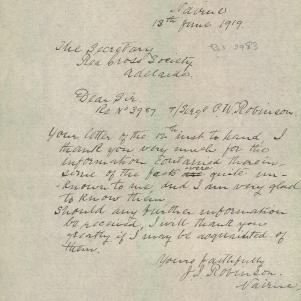 Nairne
13th June 1919.
The Secretary
Red Cross Society
Adelaide.
Dear Sir
Re No 3987 T/Sergt O.W. Robinson
Your letter of the 12th inst to hand, I
thank you very much for the
information contained therein
some of the facts were quite un-
known to me, and I am very glad
to know them.
Should any further information
be received, I will thank you
greatly if I may be acquainted of
them.
Yours faithfully
J. Robinson.
Nairne